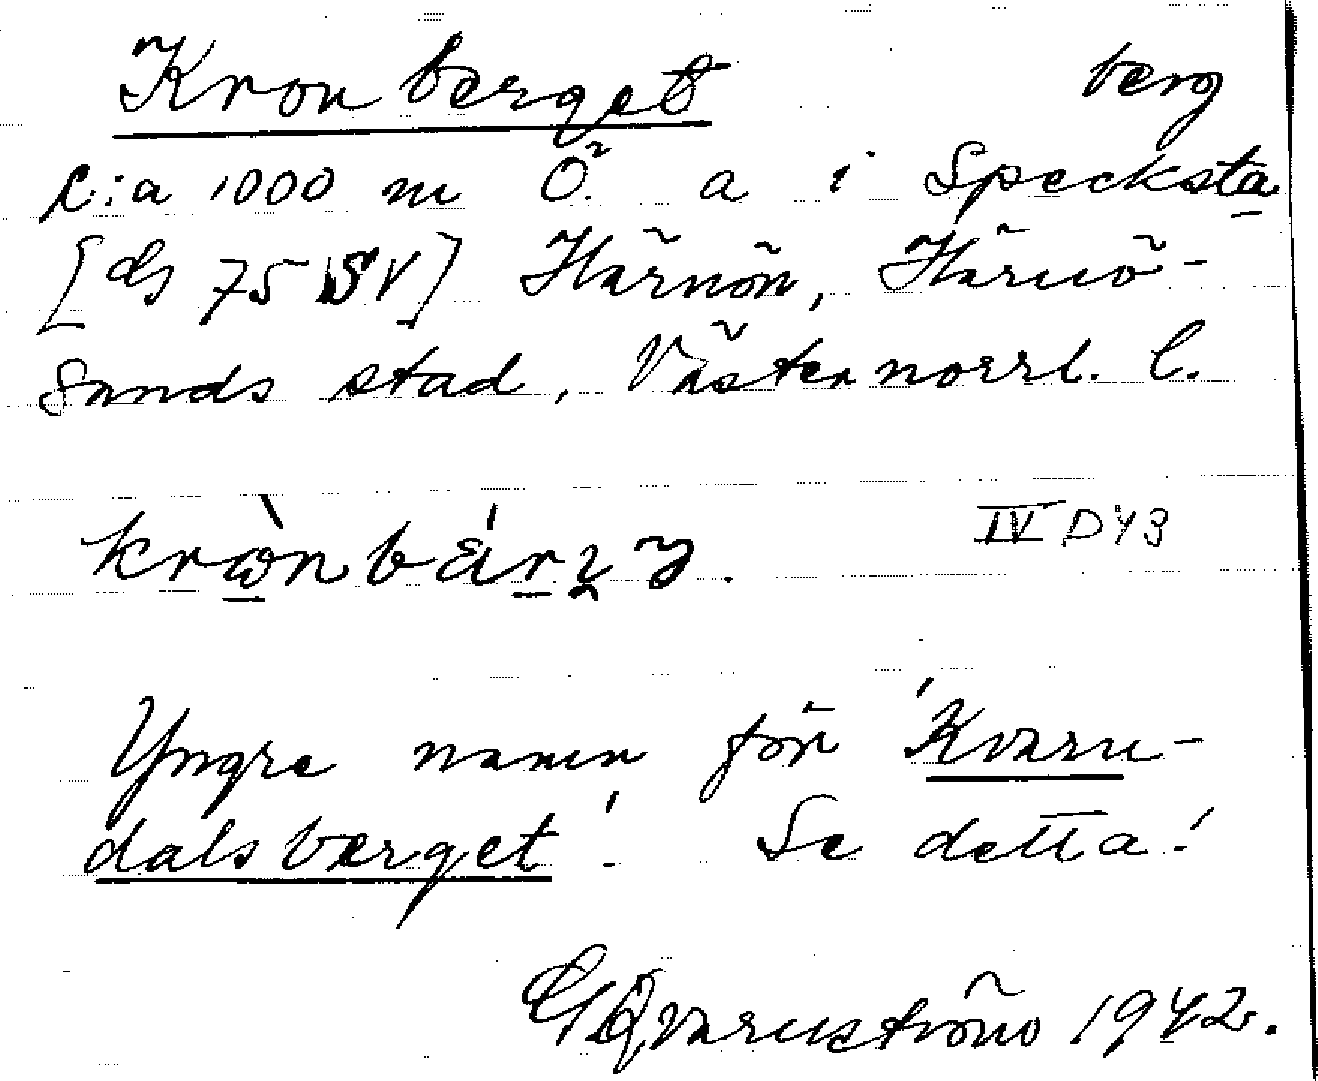 Kronberget berg
c:a 1000 m Ö. a i Specksta
[ds 75 SV] Härnön, Härnö-
sands stad, Västernorrl. l.
IV D43
Yngre namn för 'Kvarn-
dalsberget'. Se detta!
Qvarnström 1942.